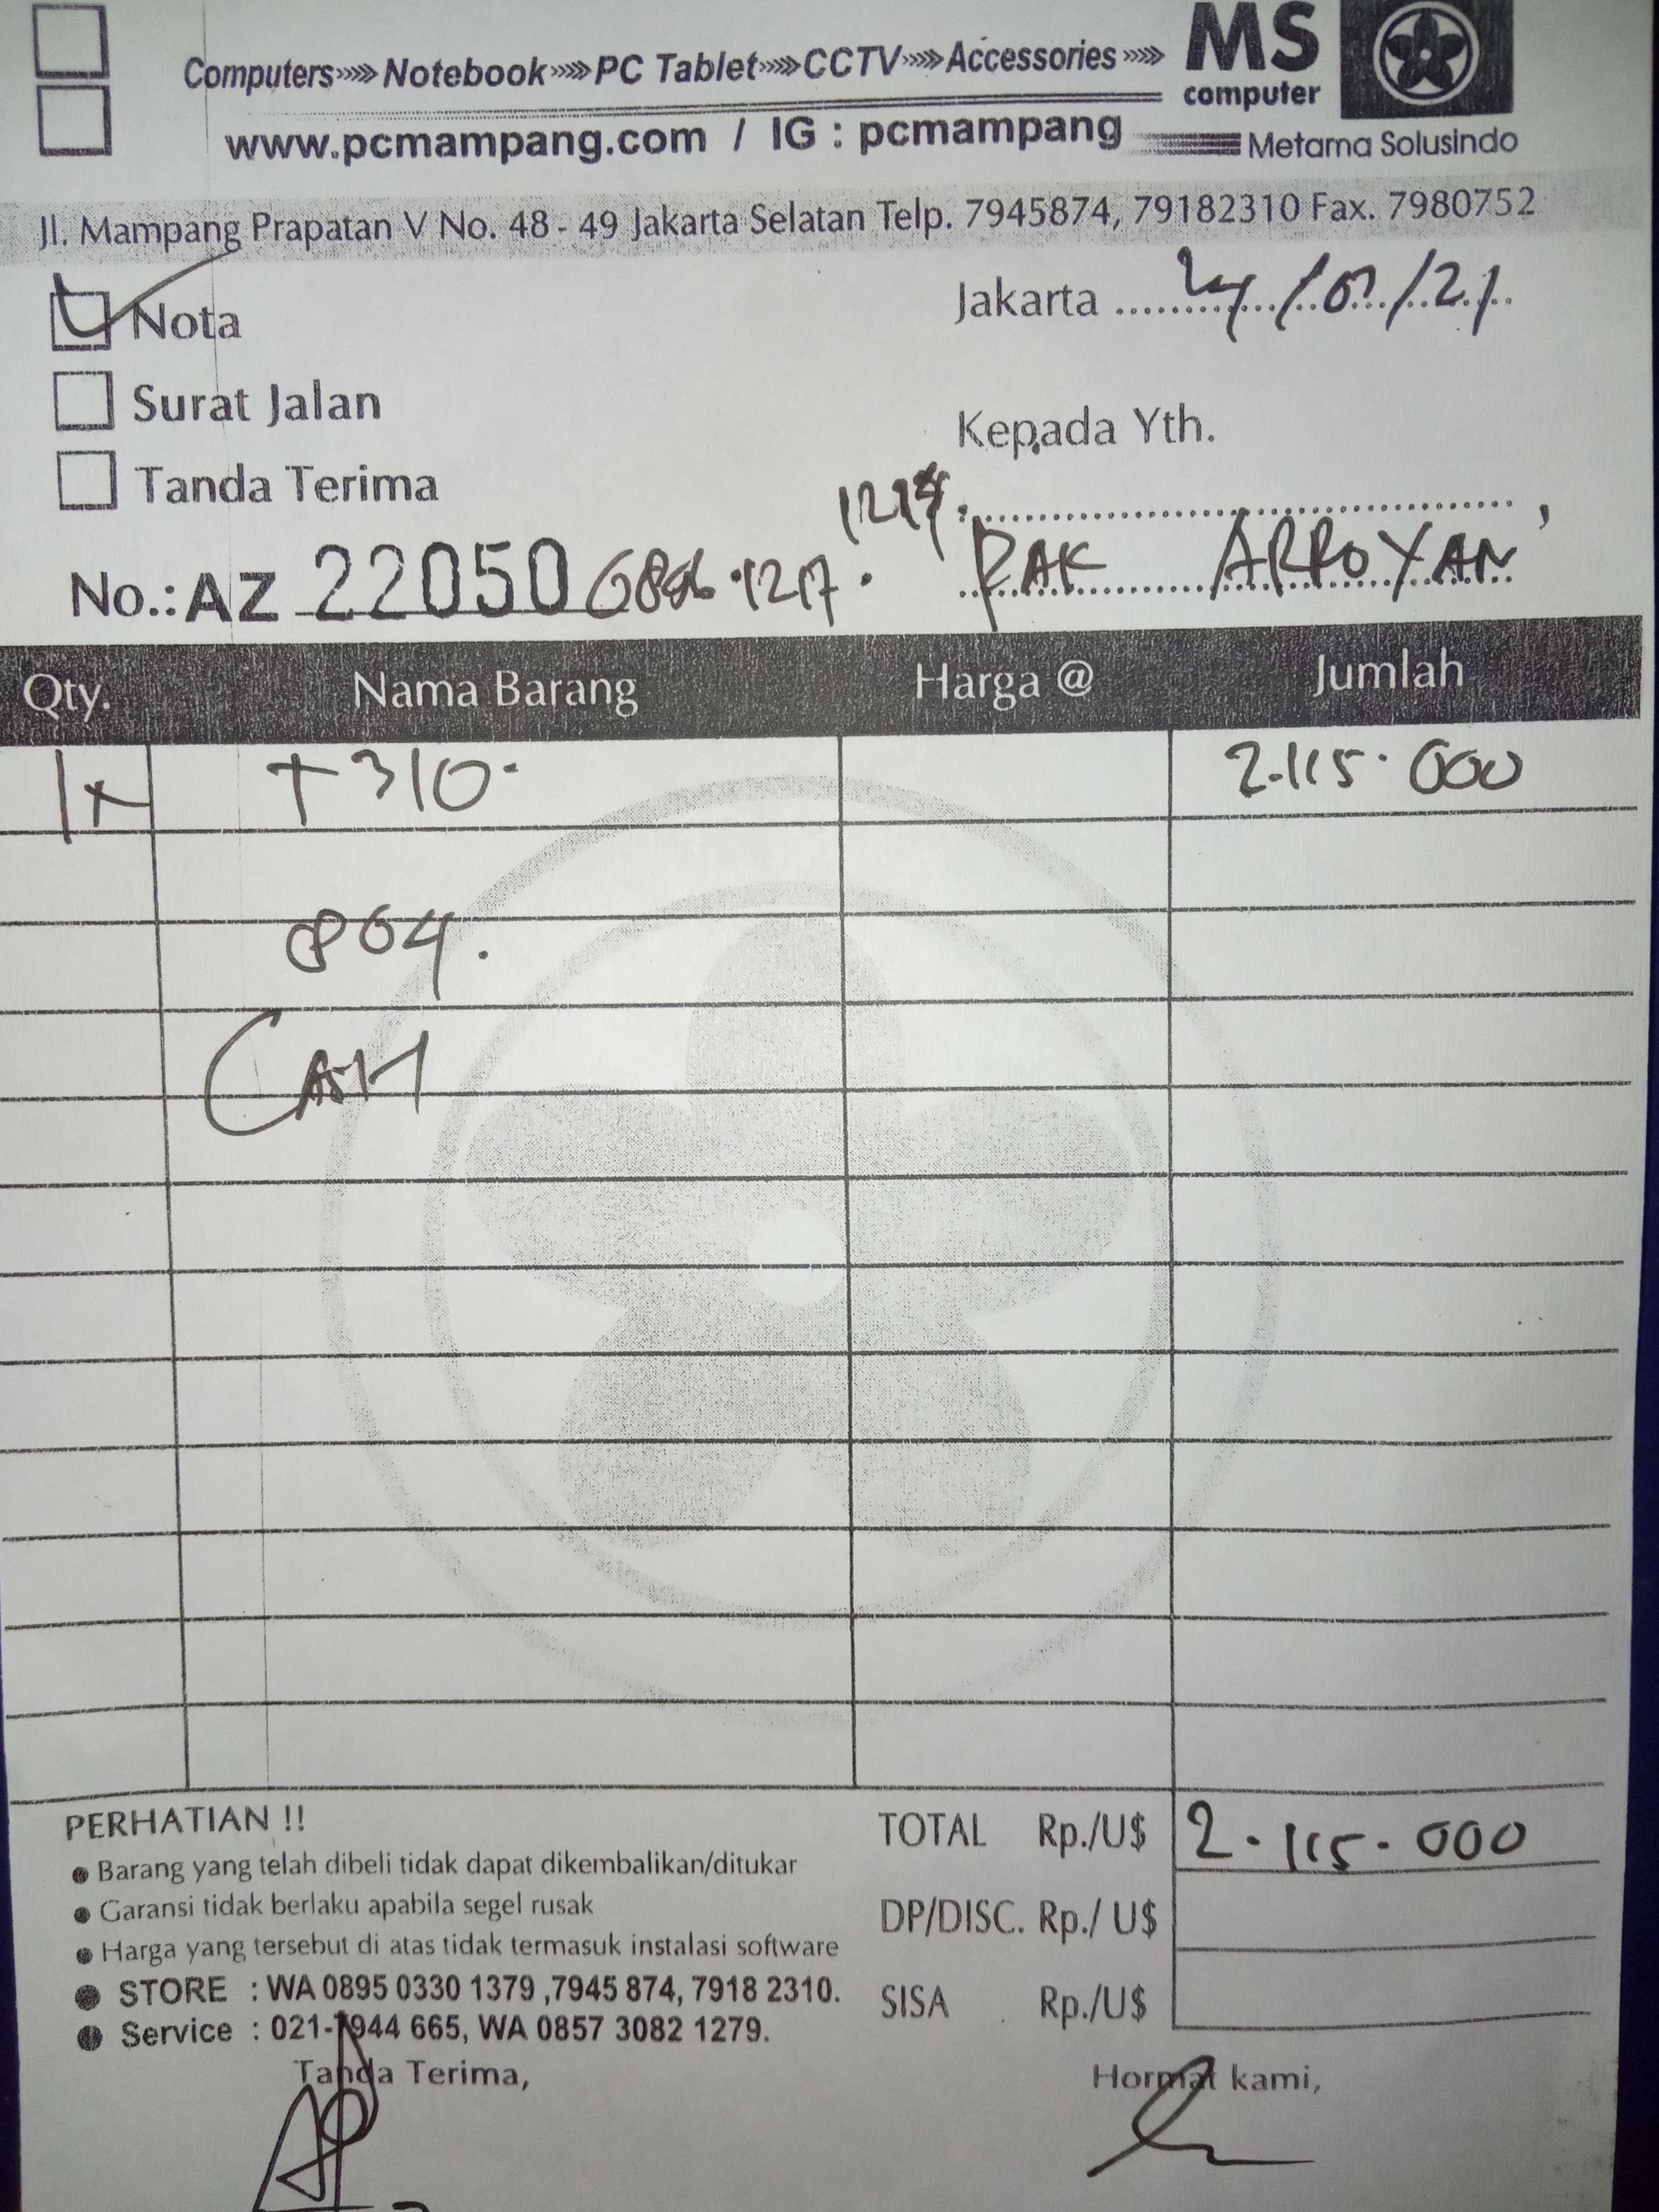 Computers »»» Notebook »»» PC Tablet »»» CCTV »»» Accessories »»»
MS
computer
www.pcmampang.com / IG : pcmampang
Metarna Solusindo
Jl. Mampang Prapatan V No. 48 - 49 Jakarta Selatan Telp. 7945874, 79182310 Fax. 7980752
Nota
Jakarta
Surat Jalan
Kepada Yth.
Tanda Terima
PAK ARROYAN
No.: AZ 22050
Qty. Nama Barang Harga @ Jumlah
1x T310. 2.115.000
CASH
PERHATIAN !!
TOTAL Rp./U$ 2.115.000
● Barang yang telah dibeli tidak dapat dikembalikan/ditukar
● Garansi tidak berlaku apabila segel rusak
DP/DISC. Rp./ U$
● Harga yang tersebut di atas tidak termasuk instalasi software
● STORE : WA 0895 0330 1379 ,7945 874, 7918 2310.
SISA Rp./U$
● Service : 021-7944 665, WA 0857 3082 1279.
Tanda Terima,
Hormat kami,